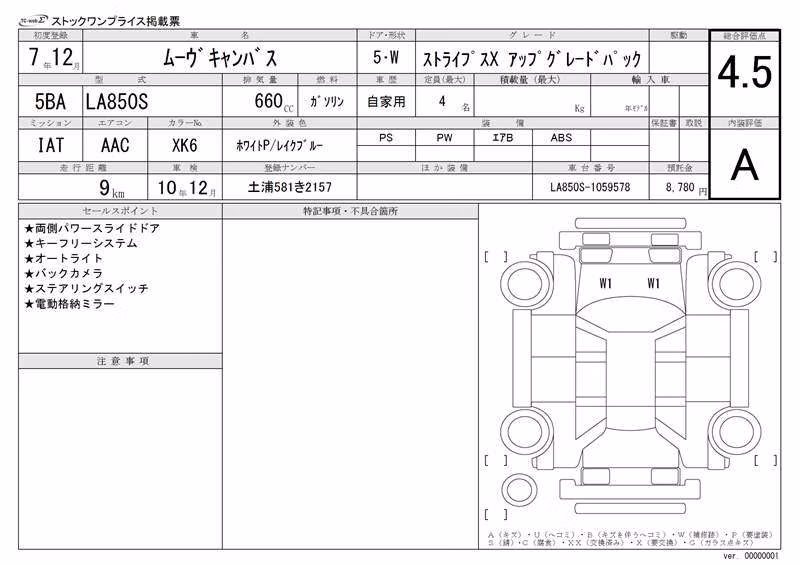 TC-webΣ ストックワンプライス掲載票
初度登録 車名 ドア・形状 グレード 駆動 総合評価点
7年12月 ムーヴキャンバス 5・W ストライプスX アップグレードパック 4.5
型式 排気量 燃料 車歴 定員(最大) 積載量(最大) 輸入車
5BA LA850S 660CC ガソリン 自家用 4名 Kg 年モデル
ミッション エアコン カラーNo. 外装色 装備 保証書 取説 内装評価
IAT AAC XK6 ホワイトP/レイクブルー PS PW エアB ABS A
走行距離 車検 登録ナンバー ほか装備 車台番号 預託金
9km 10年12月 土浦581き2157 LA850S-1059578 8,780円
セールスポイント 特記事項・不具合箇所
★両側パワースライドドア
★キーフリーシステム
★オートライト
★バックカメラ
★ステアリングスイッチ
★電動格納ミラー
注意事項
[ ] [ ]
W1 W1
[ ] [ ]
[ ]
A(キズ)・U(ヘコミ)・B(キズを伴うヘコミ)・W(補修跡)・P(要塗装)
S(錆)・C(腐食)・XX(交換済み)・X(要交換)・G(ガラス点キズ)
ver. 00000001